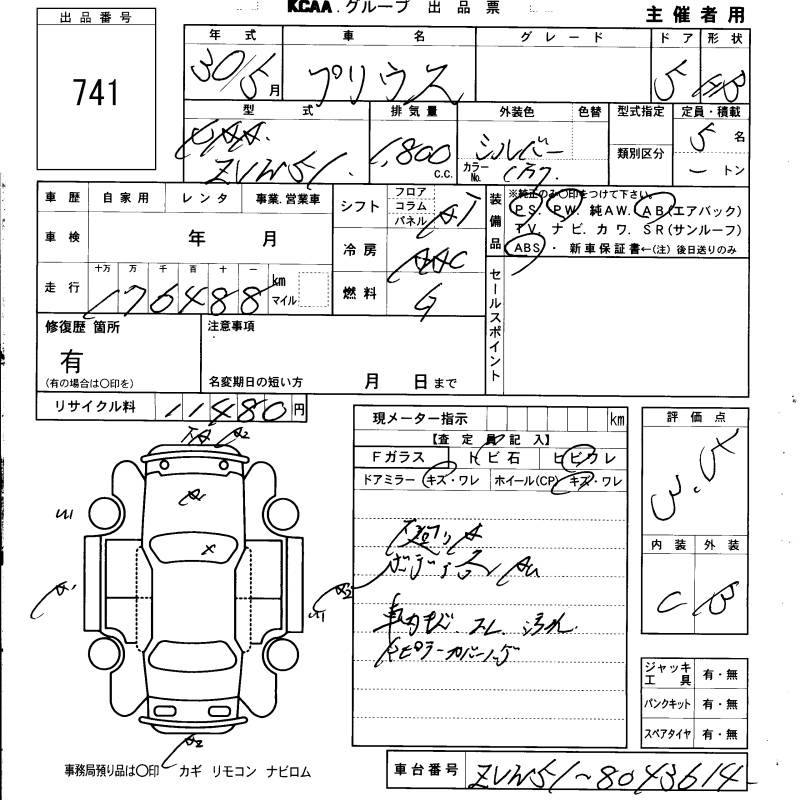 KCAA.グループ 出品票
主催者用
出品番号
741
年式 車名 グレード ドア 形状
30/5月 プリウス 5 HB
型式 排気量 外装色 色替 型式指定 定員・積載
DAA ZVW51 1,800 C.C. シルバー カラーNo. 1F7 類別区分 5名 ートン
車歴 自家用 レンタ 事業.営業車
シフト フロア コラム パネル AT
装備品 ※純正のみ〇印をつけて下さい。
PS. PW. 純AW. AB(エアバック)
TV. ナビ. カワ. SR(サンルーフ)
ABS ・ 新車保証書←(注) 後日送りのみ
車検 年 月
冷房 AAC
走行 十万 万 千 百 十 一
176488 km マイル
燃料 G
セールスポイント
修復歴 箇所
有
(有の場合は〇印を)
注意事項
名変期日の短い方 月 日まで
リサイクル料 11480円
現メーター指示 km
【査定員記入】
Fガラス トビ石 ヒビワレ
ドアミラー キズ・ワレ ホイール(CP) キズ・ワレ
A2
A1
X
A1
A2
A2
ボディ各 AU
車内キズ.スレ.汚れ.
評価点
内装 外装
C B
ジャッキ 工具 有・無
パンクキット 有・無
スペアタイヤ 有・無
事務局預り品は〇印 カギ リモコン ナビロム
車台番号 ZVW51-8043614